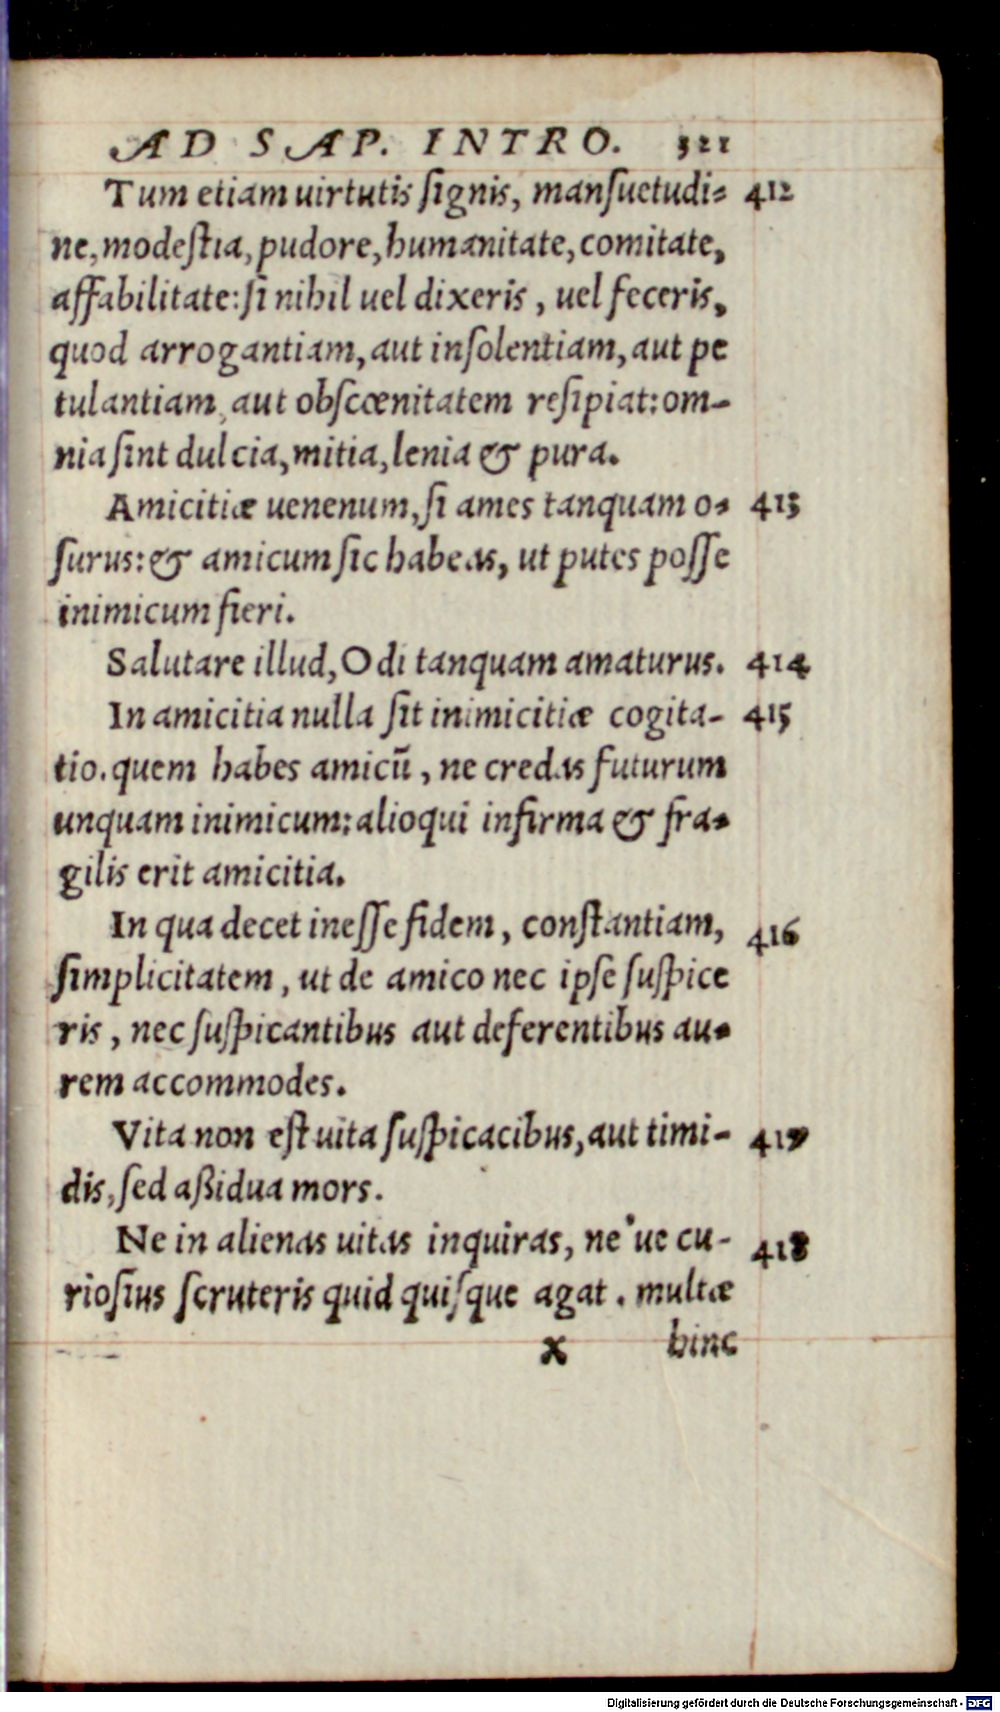 AD SAP. INTRO. 321
Tum etiam uirtutis ſignis, manſuetudi- 412
ne, modeſtia, pudore, humanitate, comitate,
affabilitate: ſi nihil uel dixeris, uel feceris,
quod arrogantiam, aut inſolentiam, aut pe
tulantiam, aut obſcœnitatem reſipiat: om-
nia ſint dulcia, mitia, lenia & pura.
Amicitiæ uenenum, ſi ames tanquam o- 413
ſurus: & amicum ſic habeas, ut putes poſſe
inimicum fieri.
Salutare illud, Odi tanquam amaturus. 414
In amicitia nulla ſit inimicitiæ cogita- 415
tio. quem habes amicū, ne credas futurum
unquam inimicum: alioqui infirma & fra-
gilis erit amicitia.
In qua decet ineſſe fidem, conſtantiam, 416
ſimplicitatem, ut de amico nec ipſe ſuſpice
ris, nec ſuſpicantibus aut deferentibus au-
rem accommodes.
Vita non eſt uita ſuſpicacibus, aut timi- 417
dis, ſed aßidua mors.
Ne in alienas uitas inquiras, ne'ue cu- 418
rioſius ſcruteris quid quiſque agat. multæ
x hinc
Digitalisierung gefördert durch die Deutsche Forschungsgemeinschaft - DFG